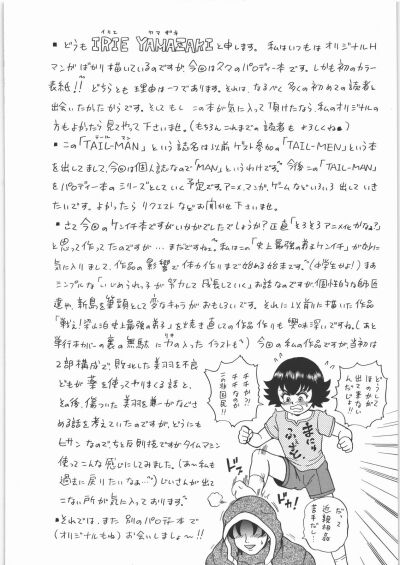 ・どうも IRIE YAMAZAKI と申します。私はいつもはオリジナルH
イリエ ヤマザキ
マンガばかり描いているのですが、今回は久々のパロディー本です。しかも初のカラー
表紙!! どちらも理由は一つであります。それは、なるべく多くの初めての読者と
出会いたかったからです。そしてもし この本が気に入って頂けたなら、私のオリジナルの
方もよかったら見てやって下さいませ。(もちろんこれまでの読者もよろしくね)
・この「TAIL-MAN」という誌名は以前ゲスト参加の「TAIL-MEN」という本
テール マン
を出してまして、今回は個人誌なので「MAN」というわけです。今後この「TAIL-MAN」
をパロディー本のシリーズとしていく予定です。アニメ、マンガ、ゲームなどいろいろ出していき
たいです。よかったらリクエストなどお聞かせ下さいませ。
・さて今回のケンイチ本ですがいかがでしたでしょうか?正直「そろそろアニメ化かなぁ?」
と思って作ってたのですが…まだですねぇ。私はこの「史上最強の弟子ケンイチ」がかなり
気に入りまして、作品の影響で体力作りまで始める始末です。(中学生かよ!)まあ
シンプルな「いじめられっ子が努力して成長していく」お話なのですが、個性的な師匠
達や、新島を筆頭として変なキャラがおもしろいです。それに以前に描いた作品
「戦え!梁山泊史上最強の弟子」を焼き直しての作品作りも興味深いですね。(あと
単行本カバーの裏の無駄に力の入ったイラストも)今回の私の作品ですが、当初は
2部構成で、敗北した美羽を不良
どもが薬を使ってヤリまくる話と、
その後、傷ついた美羽を兼一がなぐさ
める話を考えていたのですが、どうにも
ヒサンなのでちと反則技ですがタイムマシン
使ってこんな感じにしてみました。(あ〜私も
過去に戻りたいなぁ…)じいさんが出て
こない所が気に入っております。
・それでは、また 別のパロディ本で
(オリジナルもね)お会いしましょ〜!!
どうして
ほのかが
出て来ない
んだじょ!!
チチか!?
チチなのか
この当国民!!
まにゅ
ふぁ
ドズッ
ドズッ
だって
近親相姦
苦手だし…